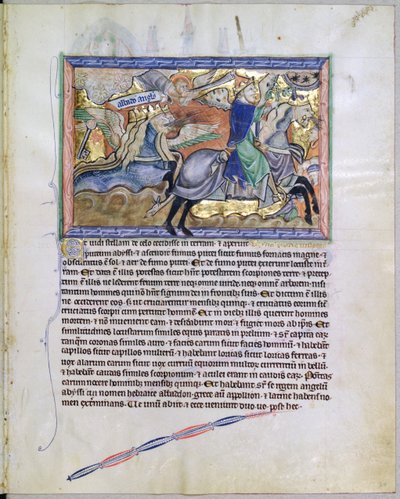 abbado angls
Et vidi stellam de celo cecidisse in terram · & aperuit
puteum abyssi · & ascendit fumus putei sicut fumus fornacis magne · &
obscuratus est sol · & aer de fumo putei · Et de fumo putei exierunt locuste in ter
ram · Et data est illis potestas sicut hnt potestatem scorpiones terre · & precep
tum est illis ne lederent fenum terre neq; omne viride · neq; omnem arborem · nisi
tantum homines qui non hnt signum dei in frontib; suis · Et dictum est illis
ne occiderent eos · sed ut cruciarentur mensib; quinq; · & cruciatus eorum sic
cruciatus scorpii cum percutit hominem · Et in dieb; illis querent homines
mortem · & non invenient eam · & desiderabunt mori · & fugiet mors ab ipsis · Et
similitudines locustarum similes equis paratis in prelium · & super capita eaz
tanquam corone similes auro · & facies earum sicut facies hominum · & habebant
capillos sicut capillos mulierum · & habebant loricas sicut loricas ferreas · &
vox alarum earum sicut vox curruum equorum multorum currentium in bellum ·
& habebant caudas similes scorpionum · & aculei erant in caudis eaz · Potestas
earum nocere hominib; mensib; quinq; · Et habebant super se regem angelum
abyssi cui nomen hebraice abbaddon · grece autem appollion · & latine habens no
men exterminans · Ve unum abiit · & ecce veniunt duo ve post hec ·